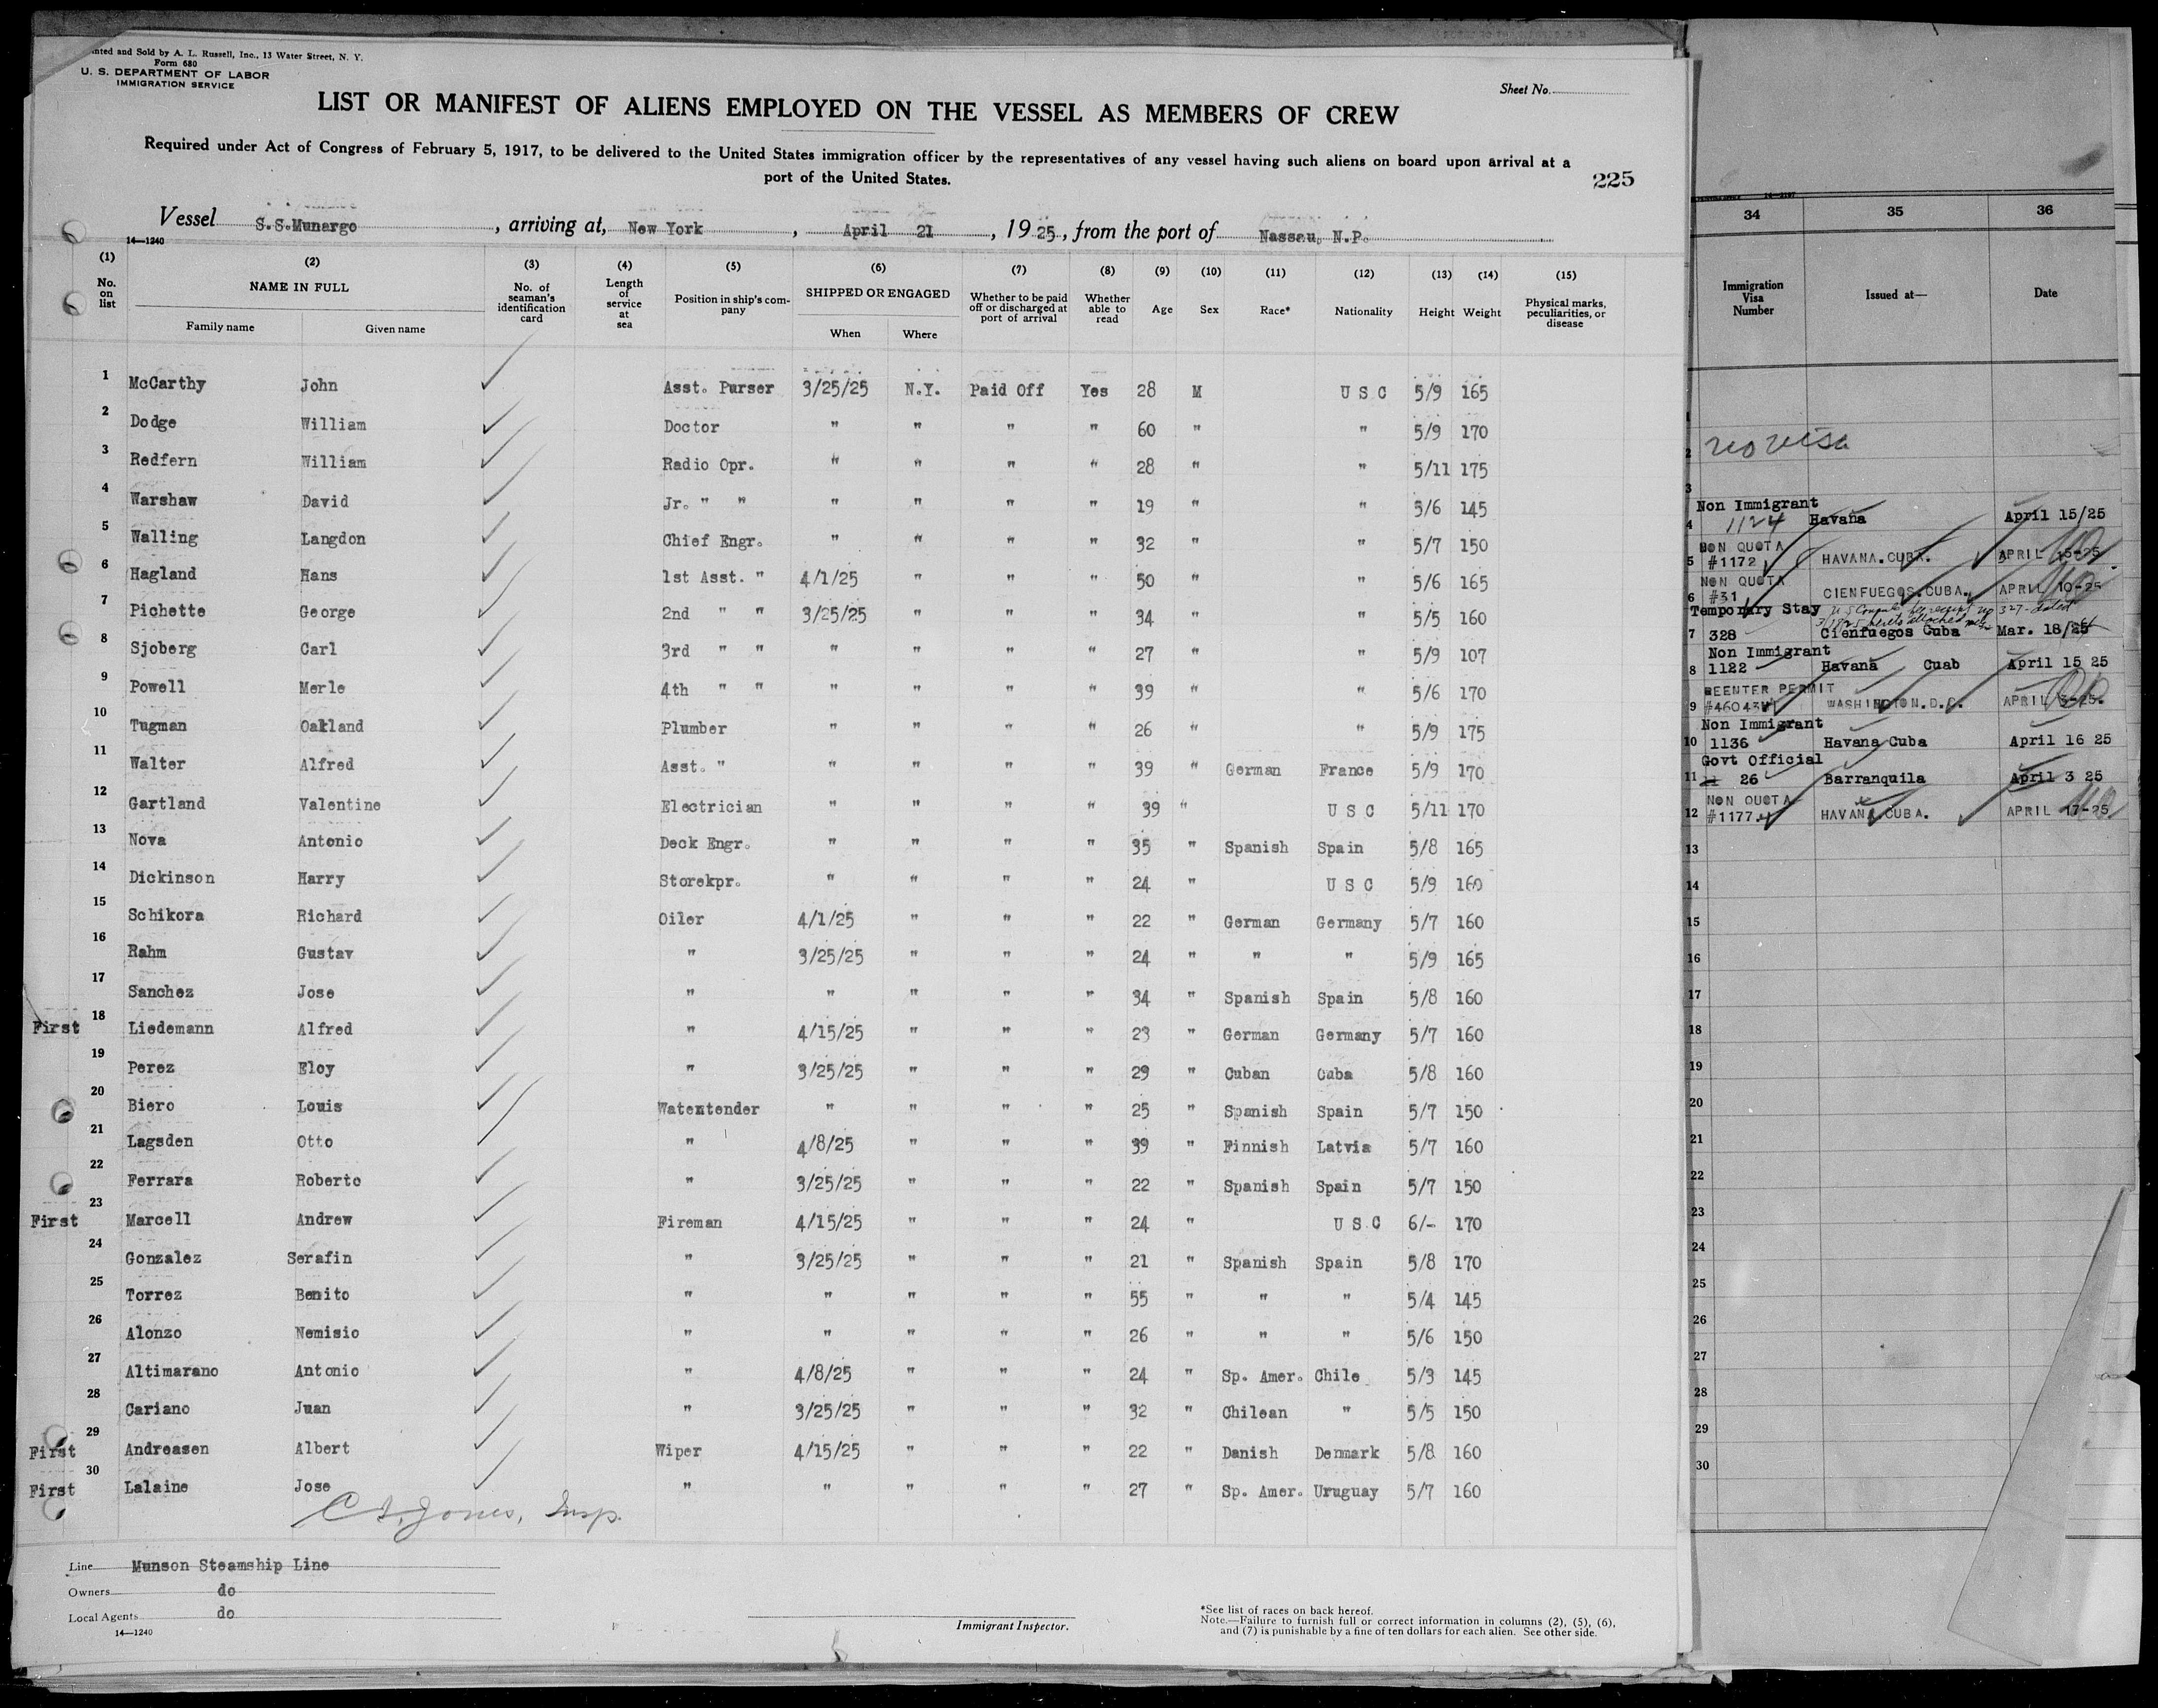 Printed and Sold by A. L. Russell, Inc., 13 Water Street, N. Y.
Form 680
U. S. DEPARTMENT OF LABOR
IMMIGRATION SERVICE
Sheet No.
LIST OR MANIFEST OF ALIENS EMPLOYED ON THE VESSEL AS MEMBERS OF CREW
Required under Act of Congress of February 5, 1917, to be delivered to the United States immigration officer by the representatives of any vessel having such aliens on board upon arrival at a
port of the United States.
225
Vessel S.S.Munargo, arriving at, New York, April 21, 1925, from the port of Nassau, N.P.
14—1240
(1) (2) (3) (4) (5) (6) (7) (8) (9) (10) (11) (12) (13) (14) (15)
No. on list NAME IN FULL Family name Given name No. of seaman's identification card Length of service at sea Position in ship's company SHIPPED OR ENGAGED When Where Whether to be paid off or discharged at port of arrival Whether able to read Age Sex Race* Nationality Height Weight Physical marks, peculiarities, or disease
1 McCarthy John Asst. Purser 3/25/25 N.Y. Paid Off Yes 28 M U S C 5/9 165
2 Dodge William Doctor " " " " 60 " " 5/9 170
3 Redfern William Radio Opr. " " " " 28 " " 5/11 175
4 Warshaw David Jr. " " " " " " 19 " " 5/6 145
5 Walling Langdon Chief Engr. " " " " 32 " " 5/7 150
6 Hagland Hans 1st Asst. " 4/1/25 " " " 50 " " 5/6 165
7 Pichette George 2nd " " 3/25/25 " " " 34 " " 5/5 160
8 Sjoberg Carl 3rd " " " " " " 27 " " 5/9 107
9 Powell Merle 4th " " " " " " 39 " " 5/6 170
10 Tugman Oakland Plumber " " " " 26 " " 5/9 175
11 Walter Alfred Asst. " " " " " 39 " German France 5/9 170
12 Gartland Valentine Electrician " " " " 39 " U S C 5/11 170
13 Nova Antonio Deck Engr. " " " " 35 " Spanish Spain 5/8 165
14 Dickinson Harry Storekpr. " " " " 24 " U S C 5/9 160
15 Schikora Richard Oiler 4/1/25 " " " 22 " German Germany 5/7 160
16 Rahm Gustav " 3/25/25 " " " 24 " " " 5/9 165
17 Sanchez Jose " " " " " 34 " Spanish Spain 5/8 160
First 18 Liedemann Alfred " 4/15/25 " " " 23 " German Germany 5/7 160
19 Perez Eloy " 3/25/25 " " " 29 " Cuban Cuba 5/8 160
20 Biero Louis Watentender " " " " 25 " Spanish Spain 5/7 150
21 Lagsden Otto " 4/8/25 " " " 39 " Finnish Latvia 5/7 160
22 Ferrara Roberto " 3/25/25 " " " 22 " Spanish Spain 5/7 150
First 23 Marcell Andrew Fireman 4/15/25 " " " 24 " U S C 6/- 170
24 Gonzalez Serafin " 3/25/25 " " " 21 " Spanish Spain 5/8 170
25 Torrez Benito " " " " " 55 " " " 5/4 145
26 Alonzo Nemisio " " " " " 26 " " " 5/6 150
27 Altimarano Antonio " 4/8/25 " " " 24 " Sp. Amer. Chile 5/3 145
28 Cariano Juan " 3/25/25 " " " 32 " Chilean " 5/5 150
First 29 Andreasen Albert Wiper 4/15/25 " " " 22 " Danish Denmark 5/8 160
First 30 Lalaine Jose " " " " " 27 " Sp. Amer. Uruguay 5/7 160
Jones, Insp.
Line Munson Steamship Line
Owners do
Local Agents do
14—1240
Immigrant Inspector.
*See list of races on back hereof.
Note.—Failure to furnish full or correct information in columns (2), (5), (6),
and (7) is punishable by a fine of ten dollars for each alien. See other side.
34 35 36
Immigration Visa Number Issued at— Date
1
2 no visa
3
Non Immigrant
4 1124 Havana April 15/25
NON QUOTA
5 #1172 HAVANA.CUBA. APRIL 15-25
NON QUOTA
6 #31 CIENFUEGOS.CUBA. APRIL 10-25
Temporary Stay
7 328 Cienfuegos Cuba Mar. 18/25
Non Immigrant
8 1122 Havana Cuab April 15 25
REENTER PERMIT
9 WASHINGTON.D.C. APRIL
Non Immigrant
10 1136 Havana Cuba April 16 25
Govt Official
11 26 Barranquila April 3 25
NON QUOTA
12 #1177 HAVANA.CUBA. APRIL 17-25
13
14
15
16
17
18
19
20
21
22
23
24
25
26
27
28
29
30